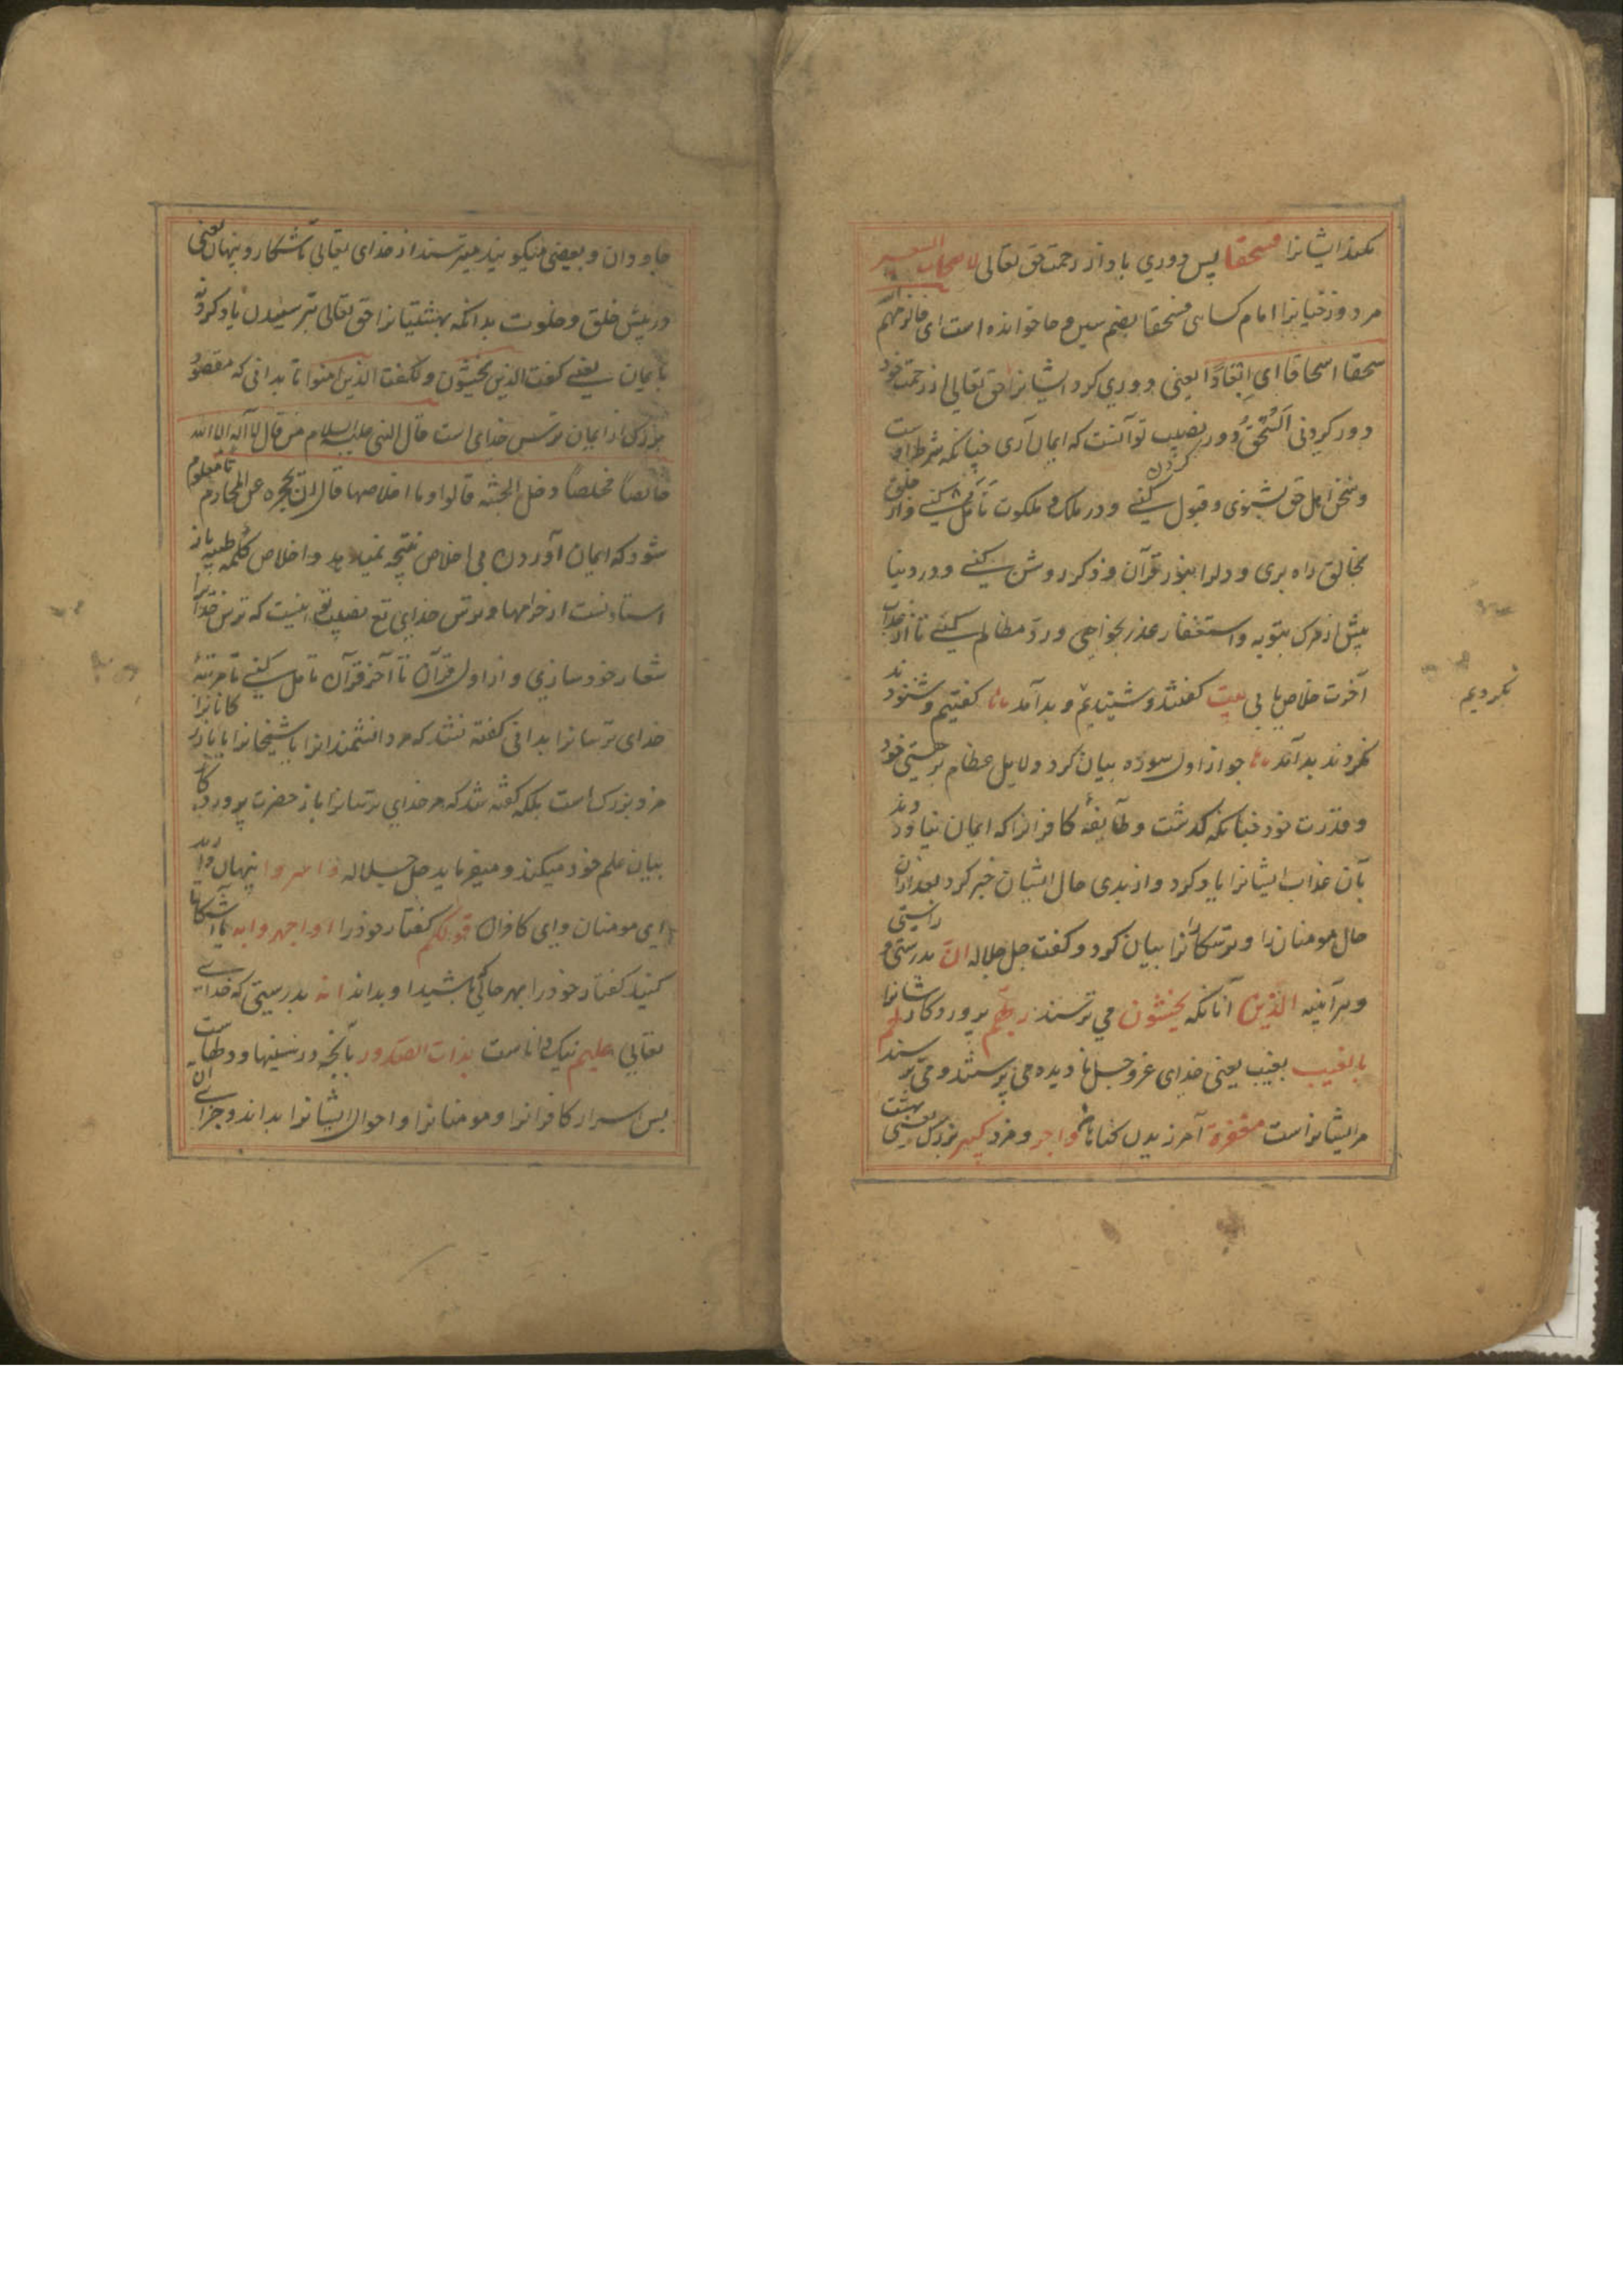 نکند ایشانرا فسحقا پس دوري باد از رحمت حق تعالی لاصحاب السعیر
مر دوزخیانرا امام کسایی فسحقا بضم سین و حا خوانده است ای فالزمهم الله
سحقا اسحاقا ای ابعادًا یعنی دوري کرد ایشانرا حق تعالی از رحمت خود
دور کردنی السُّحُقُ دور نصیب تو آنست که ایمان آری چنانکه شرط است
و سخن اهل حق بشنوی و قبول کنے و در ملک و ملکوت تأمل کردن کنے و از خلق
بخالق راه بری و دلرا بنور قرآن و ذکر روشن کنے و در دنیا
پیش از مرک بتوبه و استغفار عذر بخواهی و ردّ مظالم کنے تا از عذاب
آخرت خلاص یابی بیت گفتند و شنیدیم و بد آمد ما را گفتیم و شنودند
نکردند بد آمد ما را چو از اول سوره بیان کرد دلایل عظام بر هستی خود
و قدرت خود چنانکه گذشت و طآیفهٔ کافرانرا که ایمان نیاوردند
بآن عذاب ایشانرا یاد کرد و از بدی حال ایشان خبر کرد بعد ازان
حال مومنان را و ترسکارانرا بیان کرد و گفت جل جلاله انّ بدرستی و راستی
و هرآینه الذین آنانکه یخشون می ترسند ربّهم پروردکار شانرا
بالغیب بغیب یعنی خدای عزوجل نادیده می پرستند و می ترسند لهم
مر ایشانراست مغفرة آمرزیدن کناهان و اجر و مزد کبیر بزرک یعنی بهشت
نکردیم
جاودان و بعضی میکویند میترسند از خدای تعالی آشکار و پنهان یعنی
در پیش خلق و خلوت بدانکه بهشتیانرا حق تعالی بترسیدن یاد کرد نه
بایمان یعنے گفت الذین یخشون و نگفت الذین امنوا تا بدانی که مقصود
بزرک از ایمان ترس خدای است قال النبی علیه السلام من قال لا اله الا الله
خالصاً مخلصاً دخل الجنة قالوا و ما اخلاصها قال ان تحجزه عن المحارم تا معلوم
شود که ایمان آوردن بی اخلاص نتیجه نمیدهد و اخلاص کلمهٔ طیبه باز
استادنست از حرامها و ترس خدای تع نصیب تو اینست که ترس خدایرا
شعار خود سازی و از اول قرآن تا آخر قرآن تامل کنے تا مرتبهٔ
خدای ترسانرا بدانی گفته نشد که مر دانشمندانرا یا شیخانرا یا کانرا
مزد بزرک است بلکه گفته شد که مر خدای ترسانرا باز حضرت پروردکار
بیان علم خود میکند و میفرماید جل جلاله و اسروا پنهان دارید
ای مومنان و ای کافران قولکم گفتار خود را او اجهروا به یا آشکارا
کنید گفتار خود را بهر جا کی باشید او بداند انه بدرستی که خدای
تعالی علیم نیک داناست بذات الصدور بآنچه در سینها و دلهاست
پس اسرار کافرانرا و مومنانرا و احوال ایشانرا بداند و جزای آن